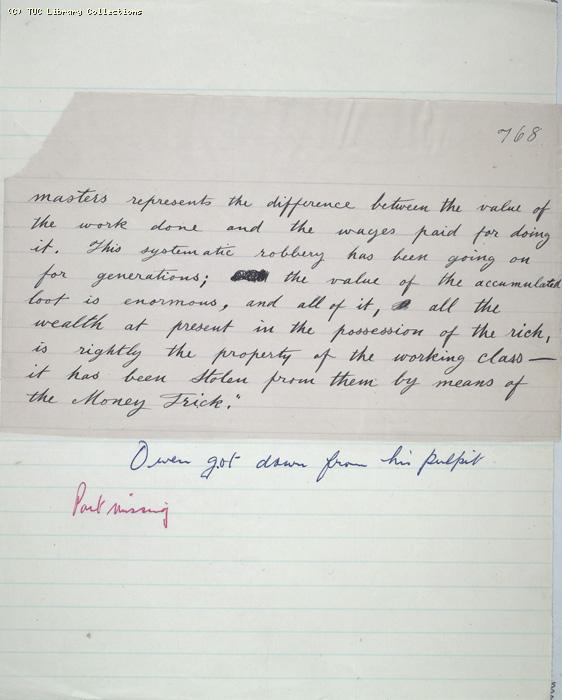 (C) TUC Library Collections
768
masters represents the difference between the value of
the work done and the wages paid for doing
it. This systematic robbery has been going on
for generations; the value of the accumulated
loot is enormous, and all of it, all the
wealth at present in the possession of the rich,
is rightly the property of the working class—
it has been stolen from them by means of
the Money Trick."
Owen got down from his pulpit
Part missing